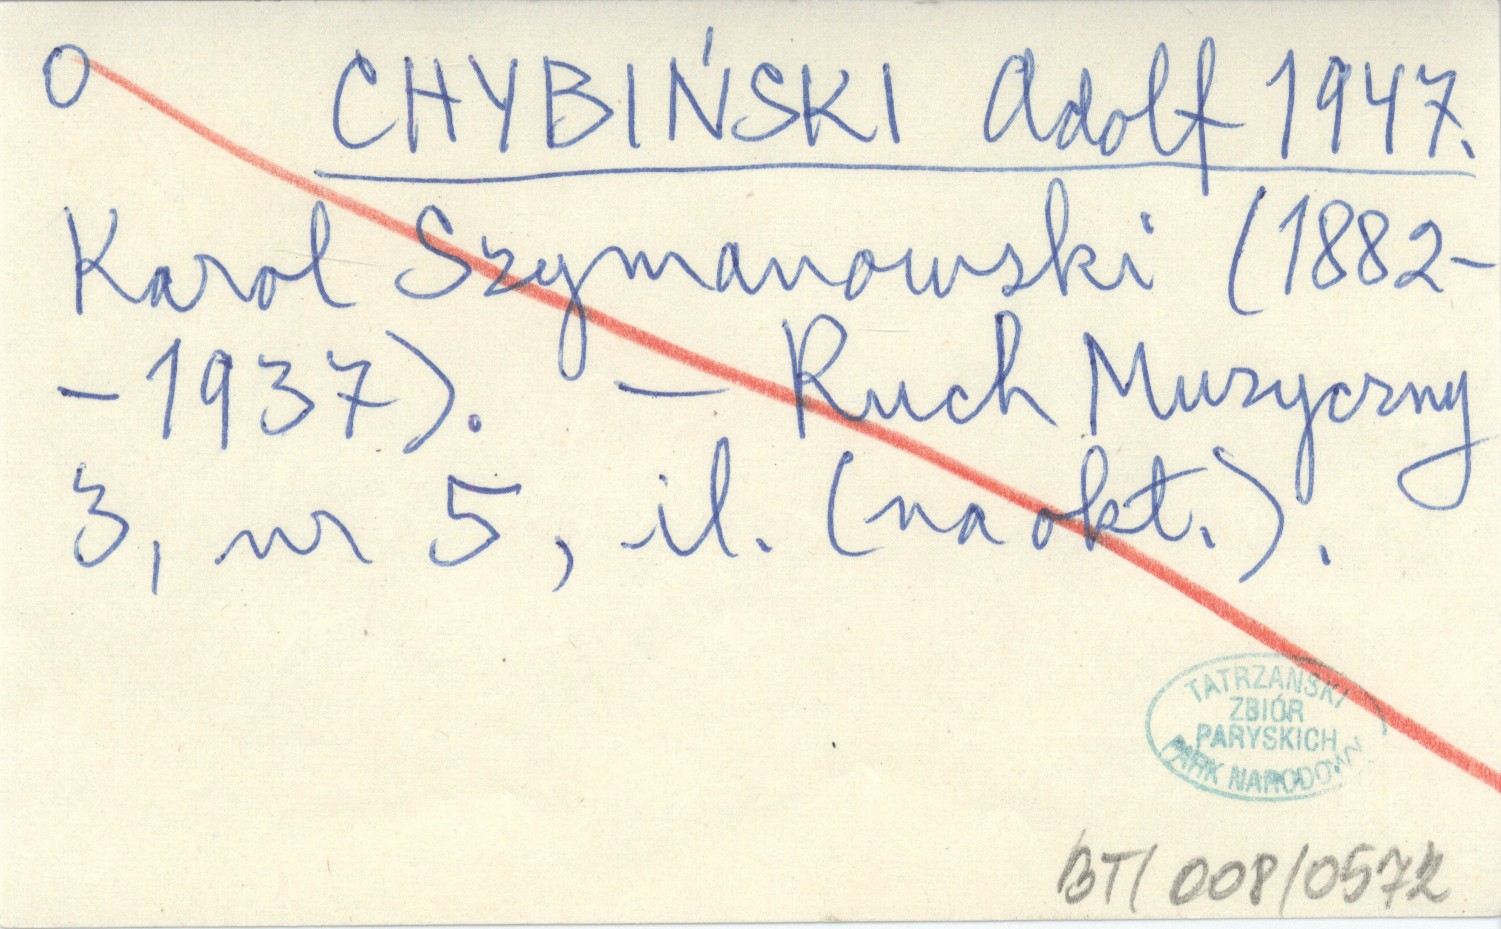 O CHYBIŃSKI Adolf 1947.
Karol Szymanowski (1882-
-1937). — Ruch Muzyczny
3, nr 5, il. (na okt.).
TATRZAŃSKI
ZBIÓR
PARYSKICH
PARK NARODOWY
BT/008/0572